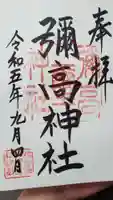 奉拝
彌高神社
令和五年九月四日